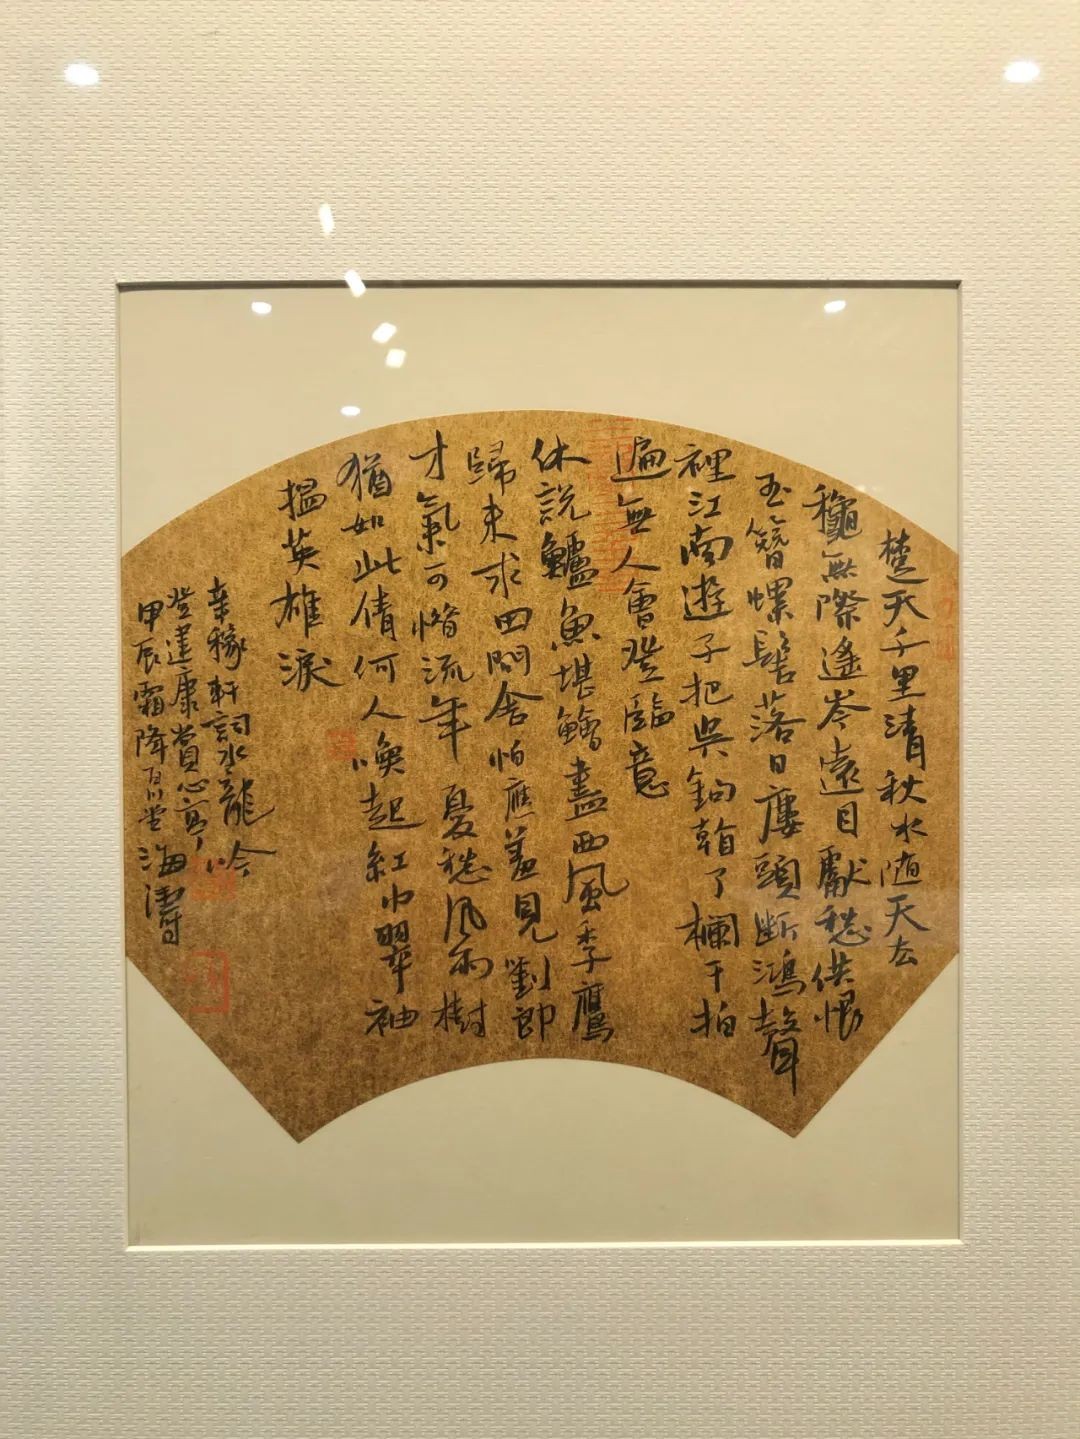 楚天千里清秋水随天去
穐無際遙岑遠目獻愁供恨
玉簪螺髻落日廔頭斷鴻聲
裡江南遊子把吳鉤看了欄干拍
遍無人會登臨意
休說鱸魚堪鱠盡西風季鷹
歸未求田問舍怕應羞見劉郎
才氣可惜流年憂愁風雨樹
猶如此倩何人喚起紅巾翠袖
揾英雄淚
辛稼軒詞水龍吟
登建康賞心亭
甲辰霜降 海濤